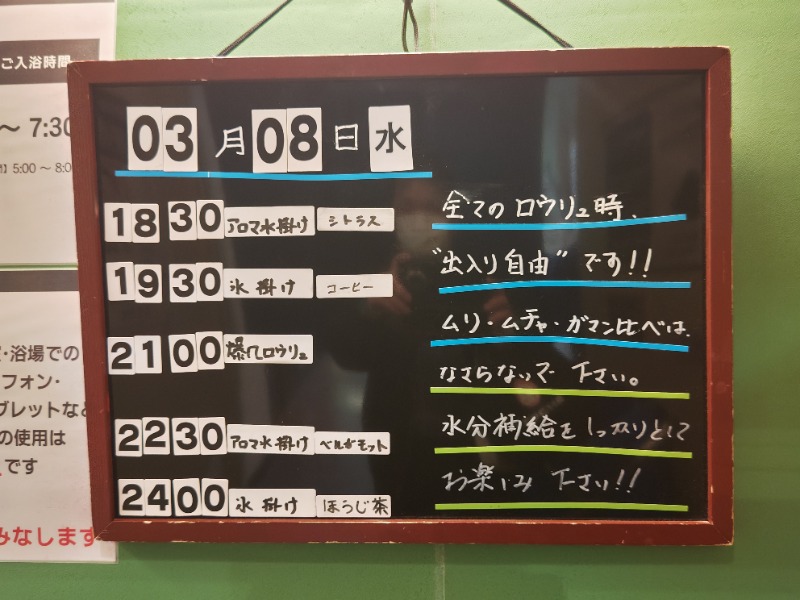 ご入浴時間
～ 7:30
5:00 ～ 8:0
03月08日 水
18 30 アロマ水掛け シトラス
19 30 氷掛け コーヒー
21 00 爆風ロウリュ
22 30 アロマ水掛け ベルガモット
24 00 氷掛け ほうじ茶
全てのロウリュ時、
"出入り自由"です!!
ムリ・ムチャ・ガマン比べは、
なさらないで 下さい。
水分補給をしっかりとして
お楽しみ 下さい!!
・浴場での
フォン・
ブレットなど
の使用は
です
みなします